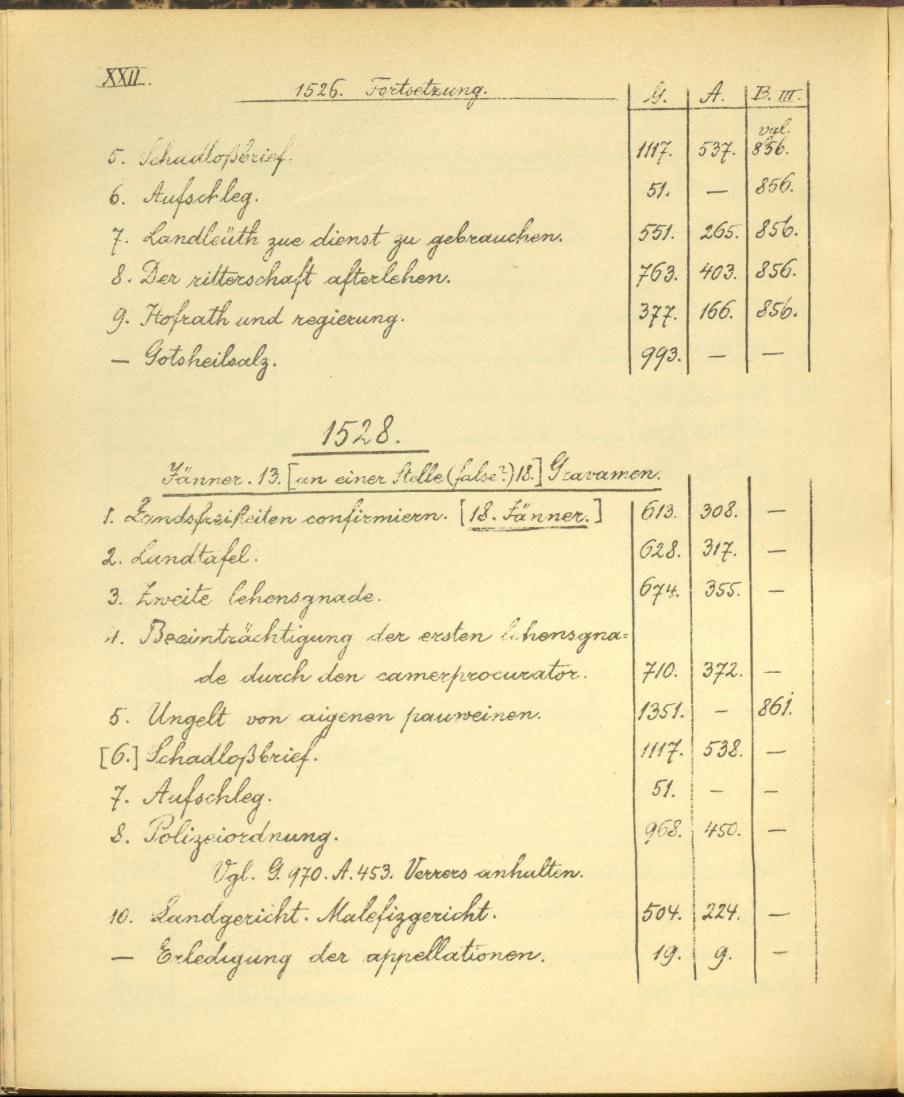 XXII.
1526. Fortsetzung. G. A. B. III.
vgl.
5. Schadloßbrief. 1117. 537. 856.
6. Aufschleg. 51. — 856.
7. Landleüth zue dienst zu gebrauchen. 551. 265. 856.
8. Der ritterschaft afterlehen. 763. 403. 856.
9. Hofrath und regierung. 377. 166. 856.
— Gotsheilsalz. 993. — —
1528.
Jänner. 13. [an einer Stelle (false?) 18.] Gravamen.
1. Landsfreiheiten confirmiern. [18. Jänner.] 613. 308. —
2. Landtafel. 628. 317. —
3. Zweite lehensgnade. 674. 355. —
4. Beeinträchtigung der ersten lehensgna=
de durch den camerprocurator. 710. 372. —
5. Ungelt von aigenen pauweinen. 1351. — 861.
[6.] Schadloßbrief. 1117. 538. —
7. Aufschleg. 51. — —
8. Polizeiordnung. 968. 450. —
Vgl. G. 970. A. 453. Verrers anhalten.
10. Landgericht. Malefizgericht. 504. 224. —
— Erledigung der appellationen. 19. 9. —